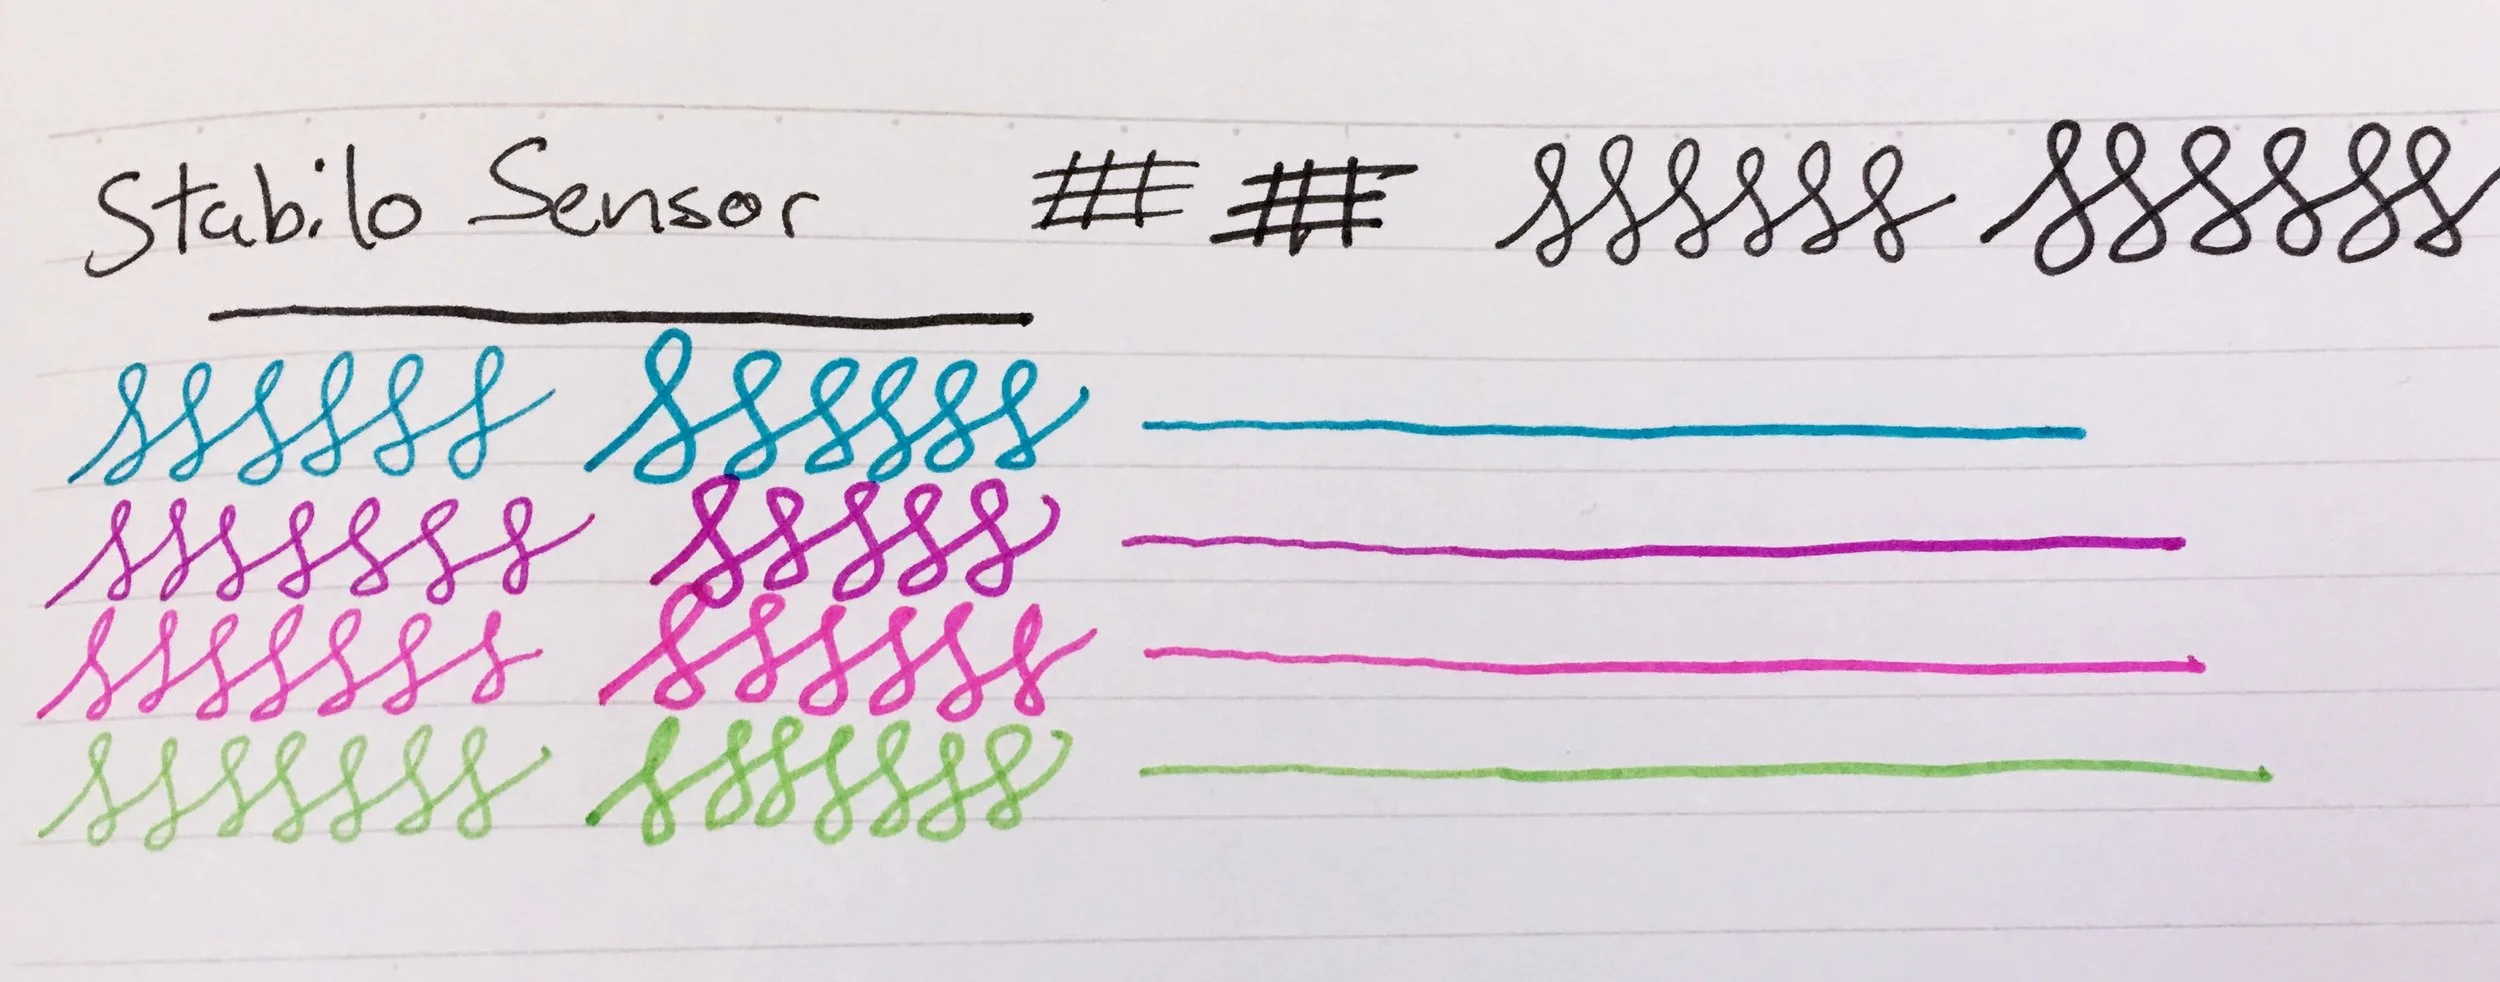 Stabilo Sensor